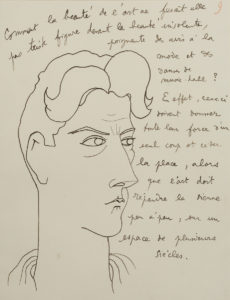 Comment la beauté de l'art ne ferait elle
pas triste figure devant la beauté insolente,
poignante de ceci à la
mode et de
danses de
music hall ?
En effet, ceux-ci
doivent donner
toute leur force d'un
seul coup et céder
la place, alors
que l'art doit
répandre la sienne
peu à peu, sur un
espace de plusieurs
siècles.